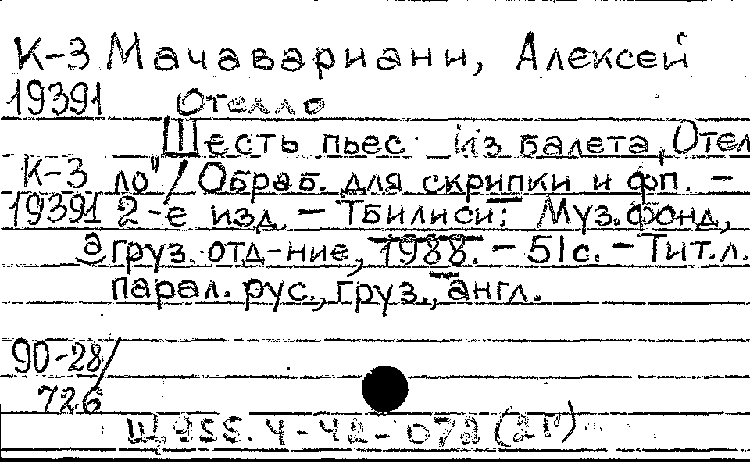 К-3 Мачавариани, Алексей
19391 Отелло
Шесть пьес из балета „Отел
К-3 ло"/ Обраб. для скрипки и фп. -
19391 2-е изд. - Тбилиси: Муз.фонд,
а груз. отд-ние, 1988. - 51с. - Тит.л.
парал. рус., груз., англ.
90-28/
726
Щ955.4-42-072